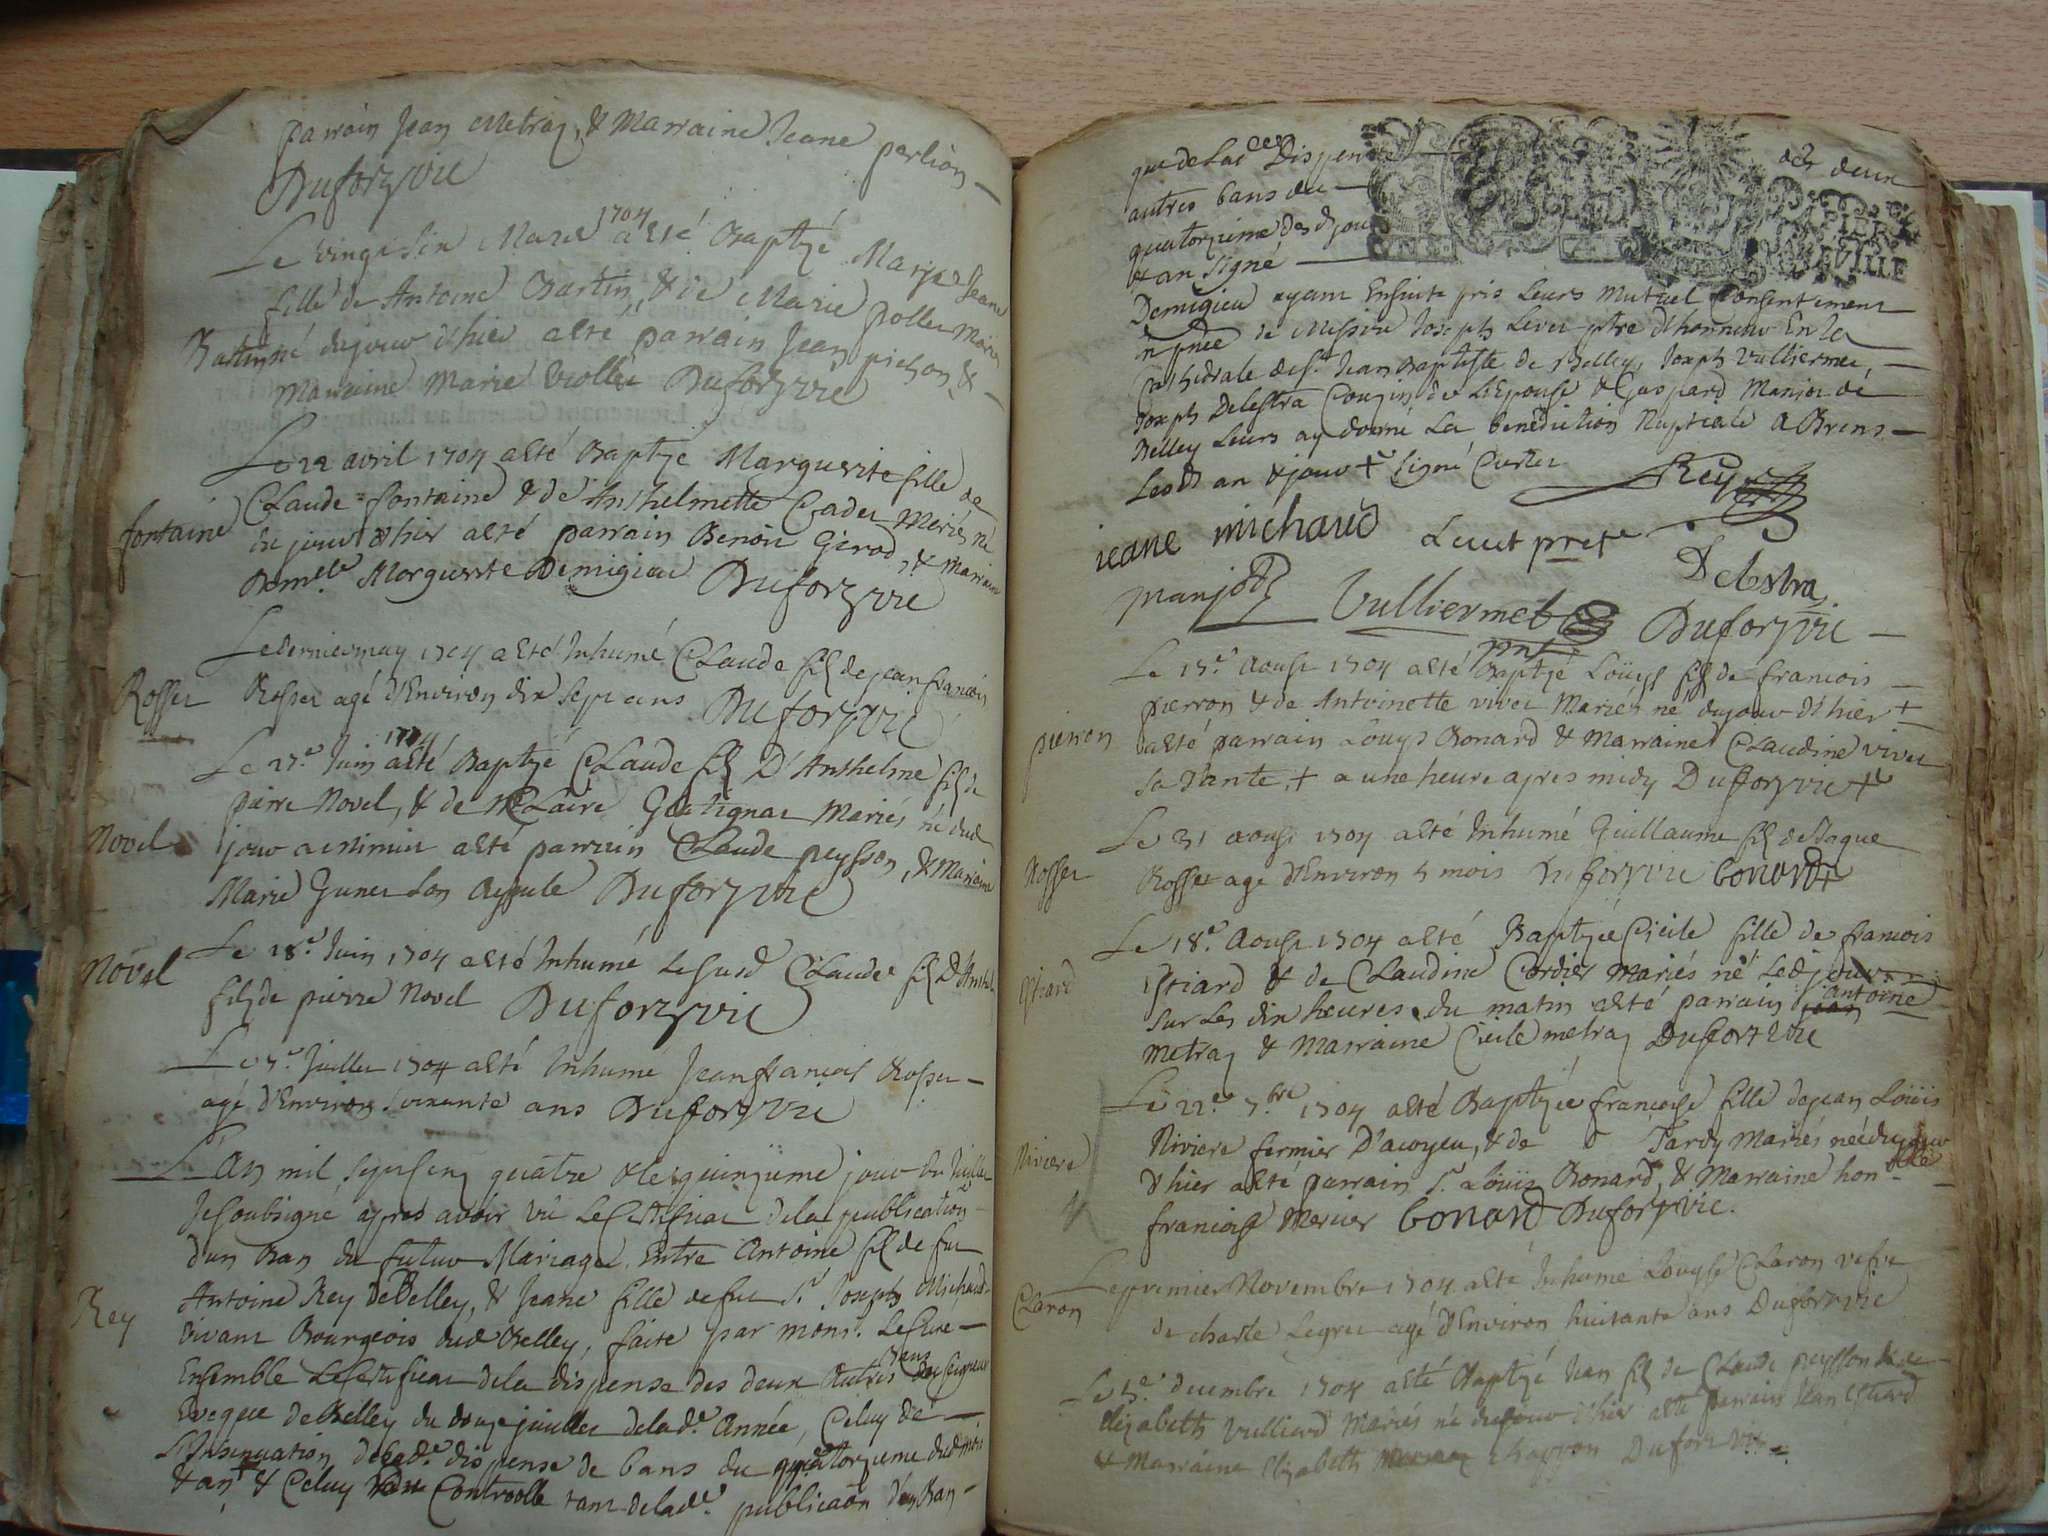 parrain Jean Metraz, & Marraine Jeane perlion
Duforz vic
Le vingt six Mars 1704 a esté Baptizé Marie Jeane
fille de Antoine Bastin, & de Marie pollet Mariés
Bastin né du jour d'hier a esté parrain Jean pichon &
Marraine Marie Viollet Duforz vic
Le 22 avril 1704 a esté Baptizé Marguerite fille de
Claude fontaine & de Anthelmette Cadet Mariés né
fontaine
du jour d'hier a esté parrain Benoit Girod, & Marraine
Demlle Marguerite Demigieu Duforz vic
Le dernier may 1704 a esté Inhumé Claude fils de jean francois
Rosset
Rosset agé d'Environ dix sept ans Duforz vic
Le 27e Juin 1704 a esté Baptizé Claude fils D'Anthelme fils de
pierre Novel, & de Claire Gratignat Mariés né dud
Novel
jour a esté parrain Claude peysson, & Marraine
Marie Ayeule Duforz vic
Le 28e Juin 1704 a esté Inhumé Le susd Claude fils D'Anthel
Novel
fils de pierre Novel Duforz vic
Le 7e Juillet 1704 a esté Inhumé Jean francois Rosset
agé d'Environ soixante ans Duforz vic
L'An mil sept cent quatre & le quinzieme jour du Juillet
Je soubsigné apres avoir vû Le Certificat de la publication
d'un Ban du futur Mariage Entre Antoine fils de feu
Antoine Rey de Belley, & Jeane fille de feu Sr Joseph Michaud
Rey
vivant Bourgeois dud Belley, faite par Monsr Le Cure
Ensemble Le Certificat de la dispense des deux Autres Bans Seigneur
Eveque de Belley du douze juillet de lade Année, Celuy de
L'Insinuation de lade dispense de bans du quatorzieme dud mois
& an & Celuy Controolle tant de lade publication d'un Ban
que de Lad Dispense des deux
autres bans du
quatorzieme desd jour
& an signé
PAPIER
VILLE
Demigieu ayant Ensuite pris Leurs Mutuel Consentement
En pnce de Messire Joseph Levet ptre d'honneur En la
Cathedrale de St Jean Baptiste de Belley, Joseph Vulliermet,
Joseph Delestra Cousin de L'Epouse & Gaspard Manjot de
Belley Leurs ay donné La benediction Nuptiale a Brens
Lesd an & jour signé
Rey
ieane michaud Levet pretre
Delestra
manjot Vulliermet Duforz vic
pnt
Le 15e Aoust 1704 a esté Baptizé Loüys fils de francois
pierron & de Antoinette vivet Mariés né du jour d'hier +
pierron
a esté parrain Loüys Bonard & Marraine Claudine vivet
sa Tante, + a une heure apres midy Duforz vic
Le 31 aoust 1704 a esté Inhumé Guillaume fils de Jaque
Rosset
Rosset agé d'Environ 5 mois Duforz vic bonard
Le 18e Aoust 1704 a esté Baptizée Cicile fille de francois
Estiard
Estiard & de Claudine Cordier mariés né Led jour
sur Les dix heures du matin a esté parrain jean Antoine
metraz & Marraine Cicile metraz Dufort vic
Le 22e 7bre 1704 a esté Baptizée francoise fille de jean Loüis
Riviere fermier D'acoyeu, & de Tardy Mariés née du jour
Riviere
d'hier a esté parrain Sr Loüis Bonard, & Marraine honlle
francoise Mercier bonard Duforz vic.
Le premier Novembre 1704 a esté Inhumé Loüyse Claron vefve
Claron
de charle Legret agé d'Environ huitante ans Duforz vic
Le 5e decembre 1704 a esté Baptizé Jean fils de Claude peysson & de
Elizabeth vulliard Mariés né du jour d'hier a esté parrain Jean Estiard
& Marraine Elizabeth chappon Duforz vic